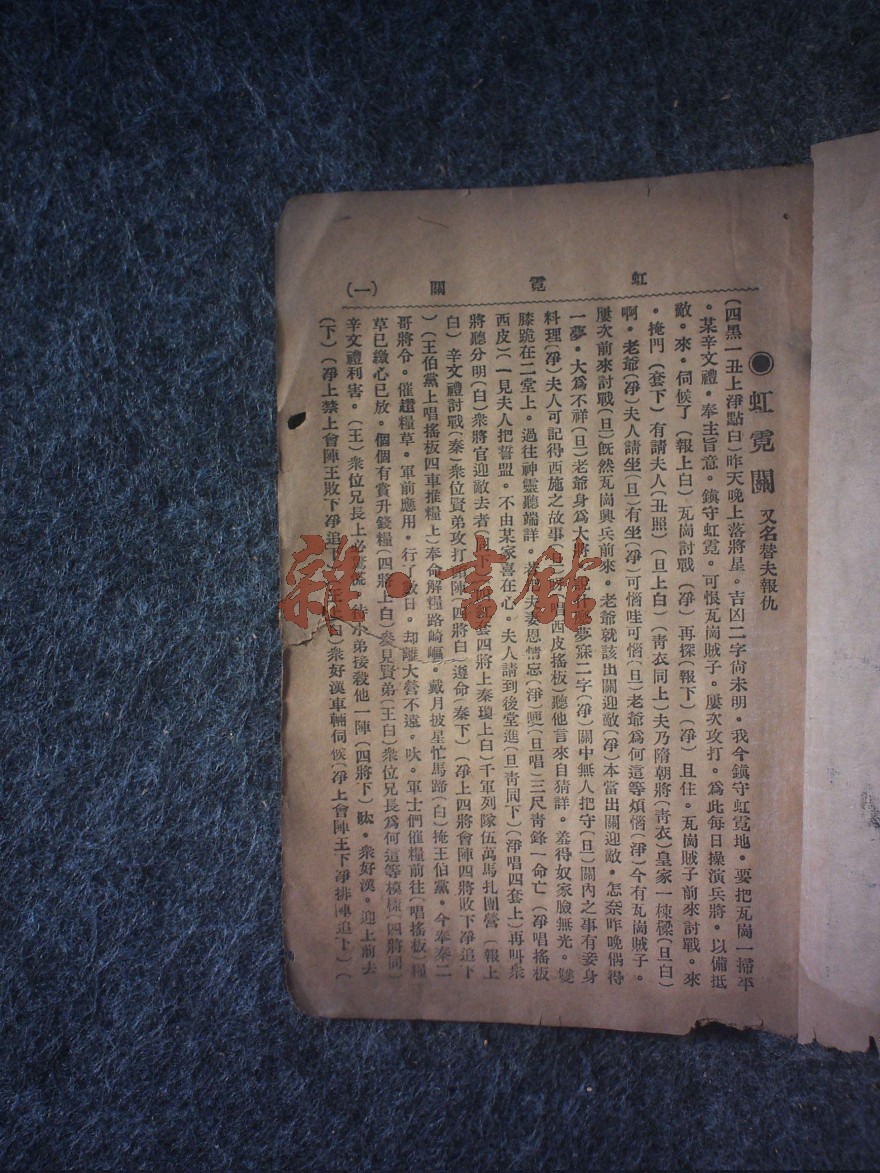 虹霓關 (一)
◉虹霓關 又名替夫報仇
(四黑一丑上淨點白)昨天晚上落將星。吉凶二字尙未明。我今鎮守虹霓地。要把瓦崗一掃平
。某辛文禮。奉主旨意。鎮守虹霓。可恨瓦崗賊子。屢次攻打。爲此每日操演兵將。以備抵
敵。來。伺候了(報上白)瓦崗討戰(淨)再探(報下)(淨)且住。瓦崗賊子前來討戰。來
。掩門(套下)有請夫人(丑照)(旦上白)(靑衣同上)夫乃隋朝將(靑衣)皇家一棟樑(旦白)
啊。老爺(淨)夫人請坐(旦)有坐(淨)可惱哇可惱(旦)老爺爲何這等煩惱(淨)今有瓦崗賊子。
屢次前來討戰(旦)旣然瓦崗興兵前來。老爺就該出關迎敵(淨)本當出關迎敵。怎奈昨晚偶得
一夢。大爲不祥(旦)老爺身爲大將夢寐二字(淨)關中無人把守(旦)關內之事有妾身
料理(淨)夫人可記得西施之故事唱西皮搖板)聽他言來自猜詳。羞得奴家臉無光。雙
膝跪在二堂上。過往神靈聽端詳。夫妻恩情忘(淨)(旦唱)三尺靑鋒一命亡(淨唱搖板
西皮)(一見夫人把誓盟。不由某家喜在心。夫人請到後堂進(旦靑同下)(淨唱四套上)再叫衆
將聽分明(白)衆將官迎敵去者四將上秦瓊上白)千軍列隊伍萬馬扎團營(報上
白)辛文禮討戰(秦)衆位賢弟攻打頭陣(四將白)遵命(秦下)(淨上四將會陣四將敗下淨追下
)(王伯黨上唱搖板四車推糧上)奉命解糧路崎嶇。戴月披星忙馬蹄(白)掩王伯黨。今奉秦二
哥將令。催趲糧草。軍前應用。行了數日。却離大營不遠。吠。軍士們催糧前往(唱搖板)糧
草已繳心已放。個個有賞升錢糧(四將上白)參見賢弟(王白)衆位兄長爲何這等模樣(四將同)
辛文禮利害。(王)衆位兄長上必驚慌弟接殺他一陣(四將下)衆好漢。迎上前去
(下)(淨上禁上會陣王敗下淨追下白)衆好漢車輛伺候(淨上會陣王下淨排陣追下)(
雜·書館